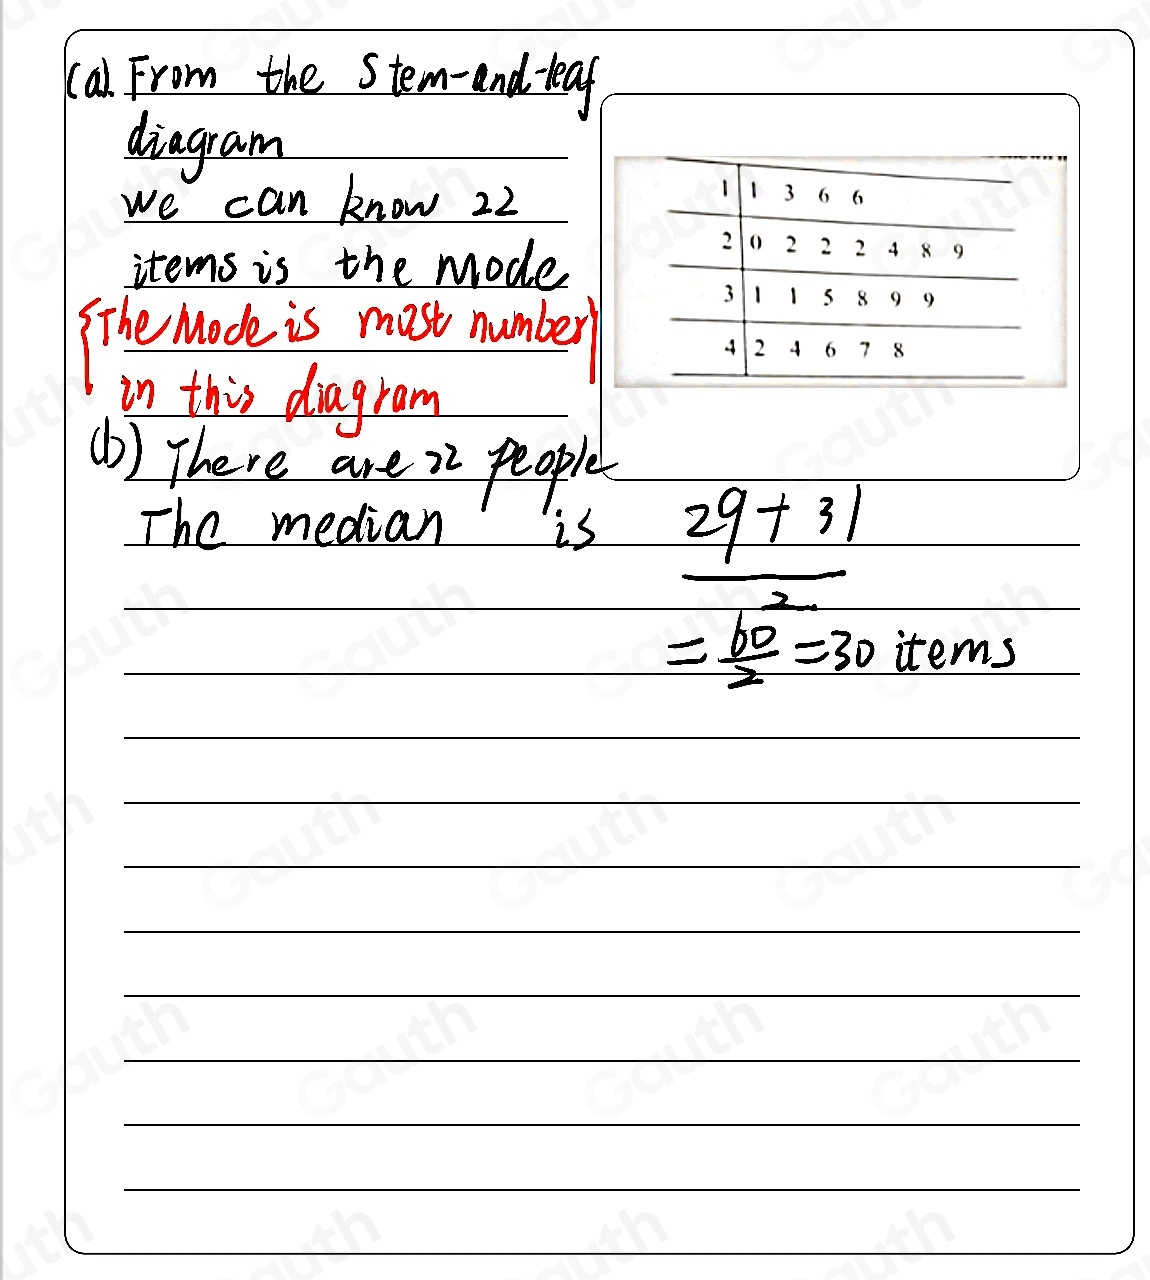 (a). From the Stem-and-leaf
diagram
we can know 22
items is the Mode
{The Mode is most number}
in this diagram
1 | 1 3 6 6
2 | 0 2 2 2 4 8 9
3 | 1 1 5 8 9 9
4 | 2 4 6 7 8
(b) There are 22 people
The median is 29+31
2
= 60/2 = 30 items
Gauth